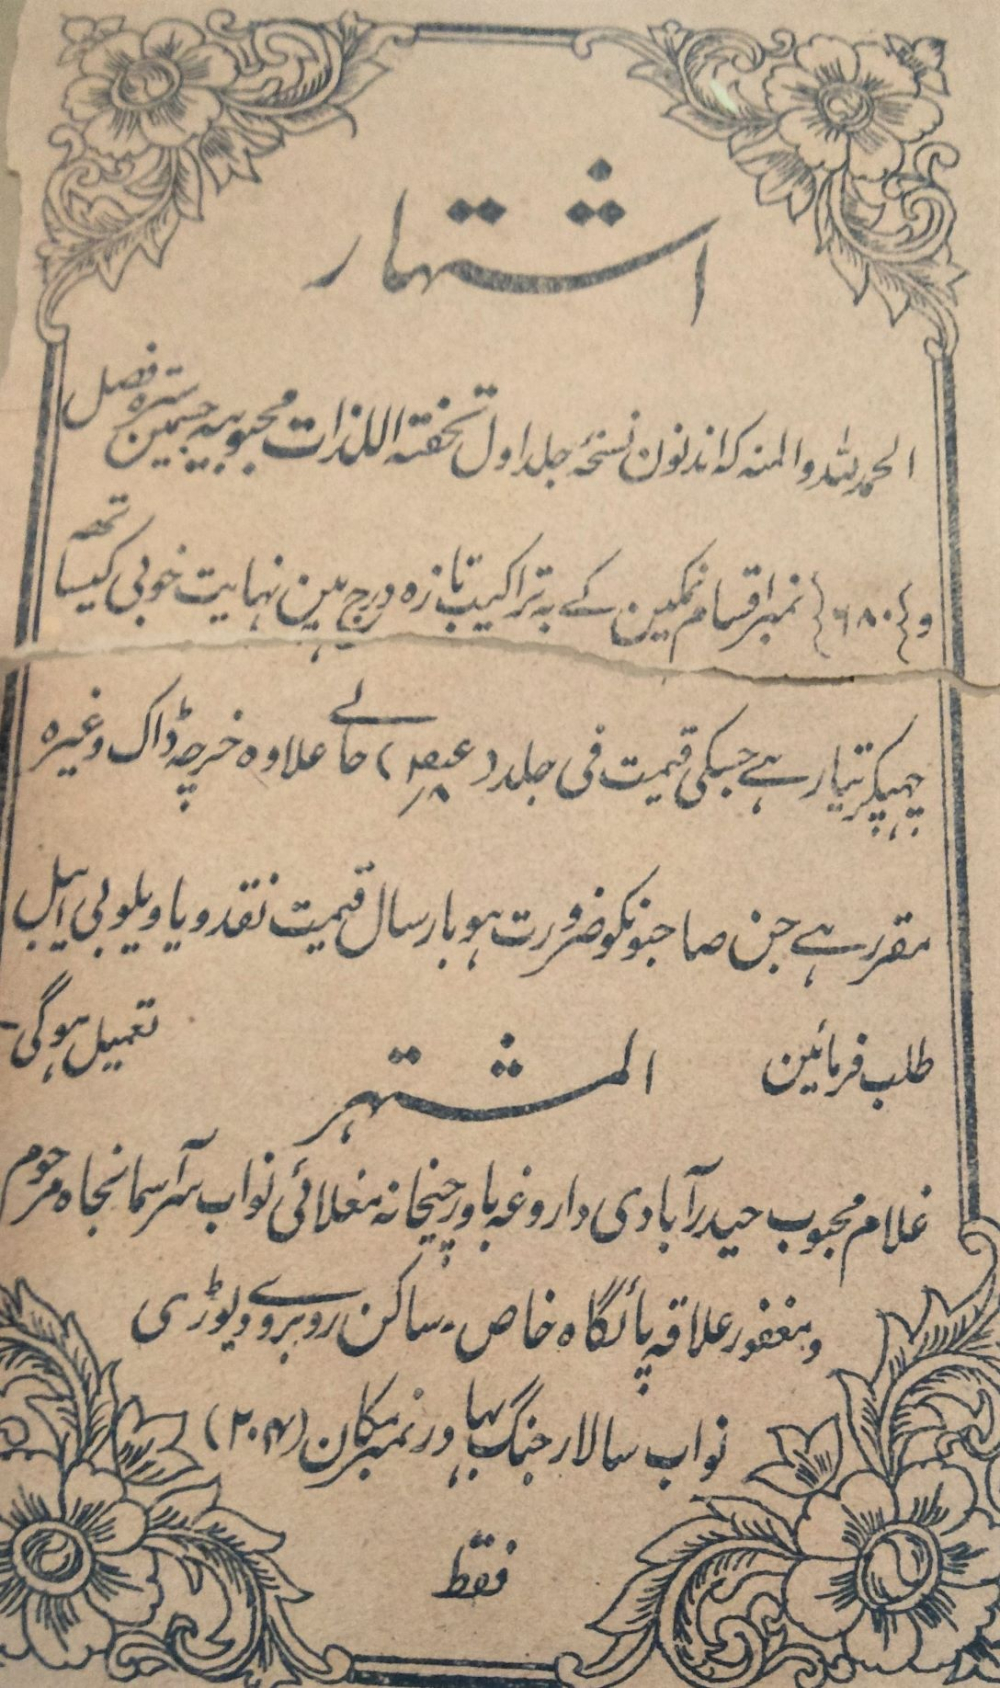 اشتہار
الحمد للہ والمنہ کہ اندنون نسخۂ جلد اول تحفتہ اللذات محبوبیہ جسمین سترہ فصل
و {۶۸۰} نمبر اقسام نمکین کے بہ تراکیب تازہ درج ہین نہایت خوبی کیساتھہ
چھپکر تیار ہے جسکی قیمت فی جلد ( ) حالے علاوہ خرچہ ڈاک وغیرہ
مقرر ہے جن صاحبونکو ضرورت ہو بارسال قیمت نقد و یا ویلو پی ایبل
طلب فرمائین تعمیل ہوگی-
المشتہر
غلام محبوب حیدرآبادی داروغہ باورچیخانہ مغلائی نواب سر آسمانجاہ مرحوم
و مغفور علاقہ پائگاہ خاص - ساکن روبروے ڈیوڑی
نواب سالار جنگ بہادر نمبر مکان (۲۰۴)
فقط